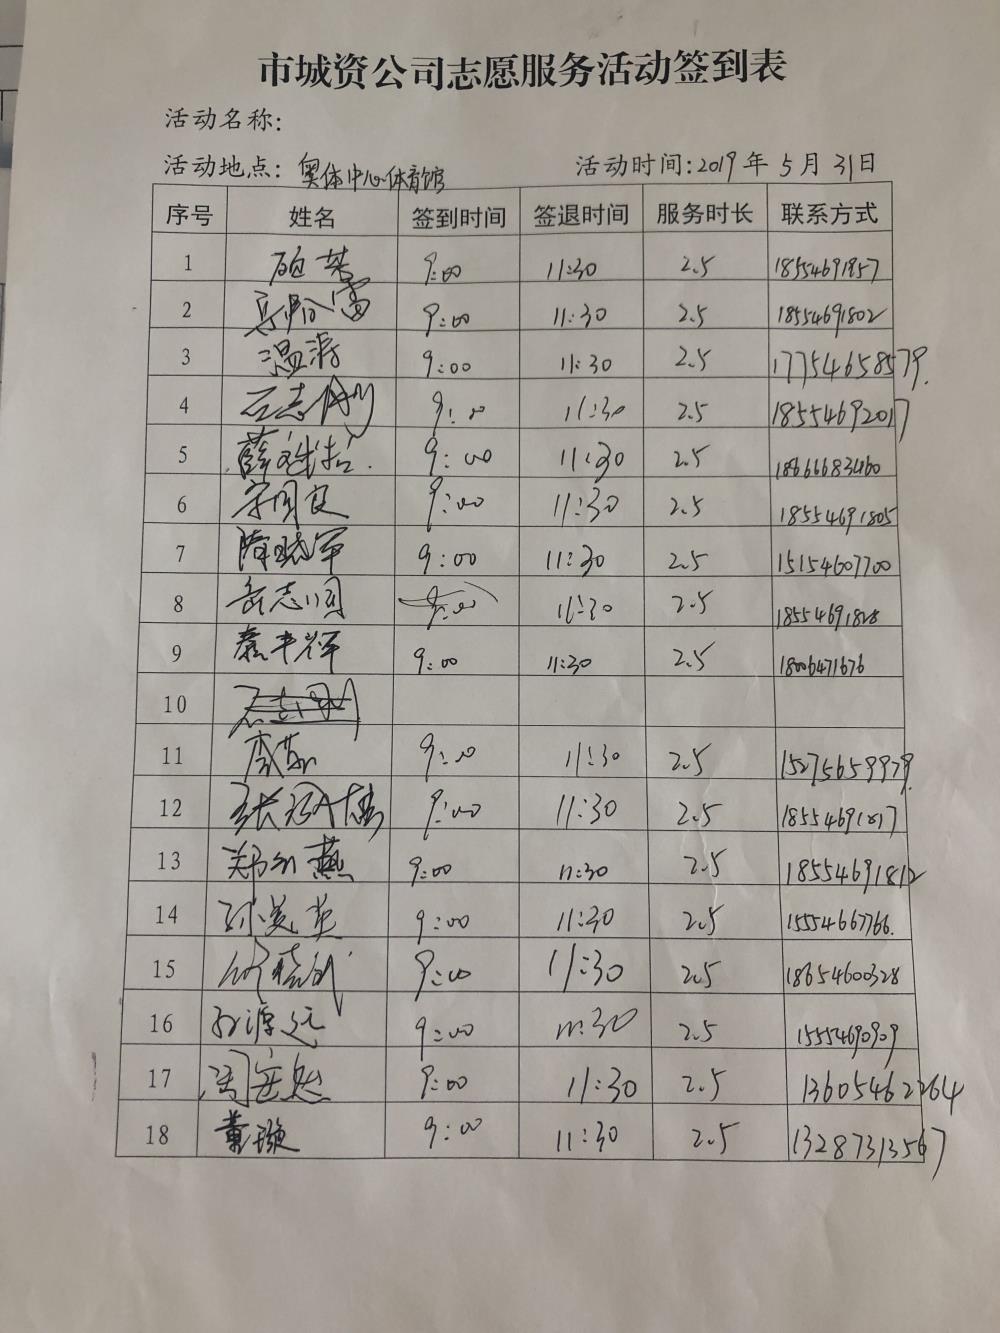 市城资公司志愿服务活动签到表
活动名称:
活动地点: 奥体中心体育馆 活动时间:2019年5月31日
序号 姓名 签到时间 签退时间 服务时长 联系方式
1 9:00 11:30 2.5 18554691857
2 9:00 11:30 2.5 18554691802
3 温涛 9:00 11:30 2.5 17754658579.
4 石志刚 9:00 11:30 2.5 18554692017
5 9:00 11:30 2.5 18666683460
6 宋同良 9:00 11:30 2.5 18554691805
7 隋晓军 9:00 11:30 2.5 15154607700
8 9:00 11:30 2.5 18554691828
9 9:00 11:30 2.5 18006471676
10
11 9:00 11:30 2.5 15275659979.
12 9:00 11:30 2.5 18554691817
13 9:00 11:30 2.5 18554691812
14 孙美英 9:00 11:30 2.5 15554667766.
15 9:00 11:30 2.5 18654600328
16 孙源远 9:00 11:30 2.5 15554690909
17 9:00 11:30 2.5 13605462264
18 董璇 9:00 11:30 2.5 13287313567